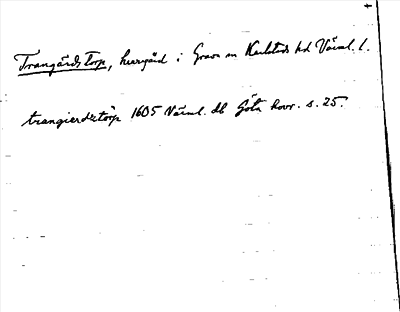 Trangärds Torp, herrgård i Grava sn Karlstads hd Värml. l.
trangierdztorp 1605 Värml. db Göta hovr. s. 25.